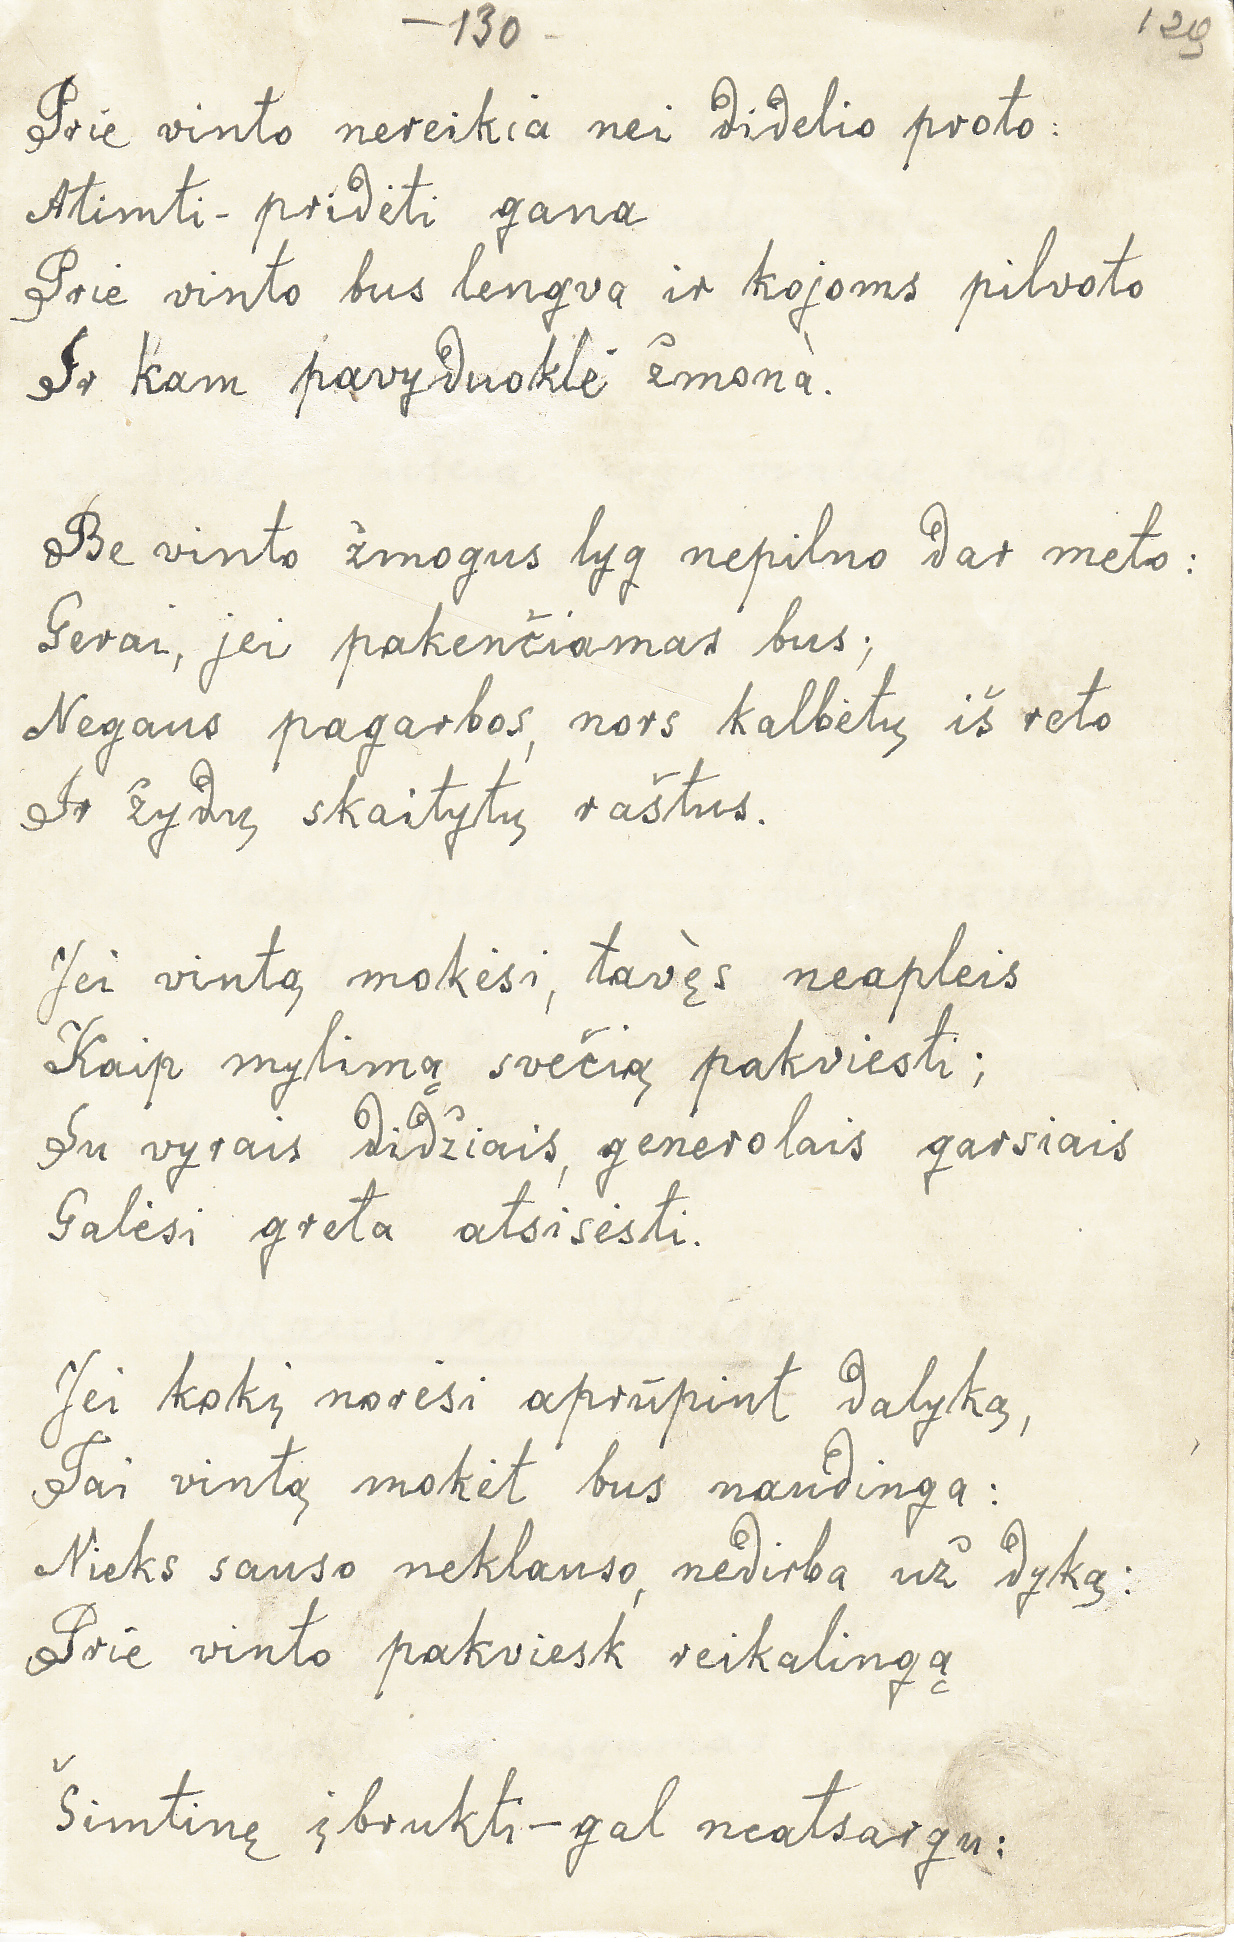 —130 - 129
Prie vinto nereikia nei didelio proto:
Atimti- pridėti gana
Prie vinto bus lengva ir kojoms pilvoto
Ir kam pavyduoklė žmonà.
Be vinto žmogus lyg nepilno dar meto:
Gerai, jei pakenčiamas bus;
Negaus pagarbos, nors kalbėtų iš reto
Ir žydų skaitytų raštus.
Jei vintą mokėsi, tavę̀s neapleis
Kaip mylimą svečią pakviesti;
Su vyrais didžiais, generolais garsiais
Galėsi greta atsisėsti.
Jei kokį norėsi aprūpint dalyką,
Tai vintą mokėt bus naudinga:
Nieks sauso neklauso, nedirba už dyką:
Prie vinto pakviesk reikalingą
Šimtinę įbrukti—gal neatsargu: